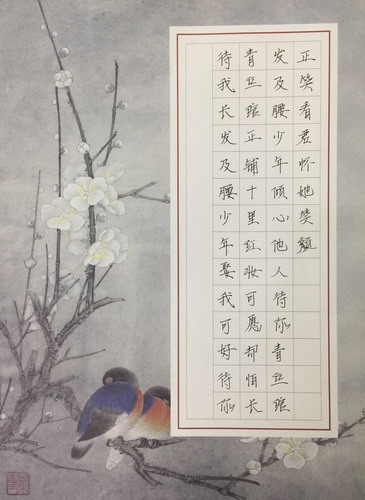 待我长发及腰少年娶我可好待你
青丝绾正铺十里红妆可愿却怕长
发及腰少年倾心他人待你青丝绾
正笑看君怀她笑颜